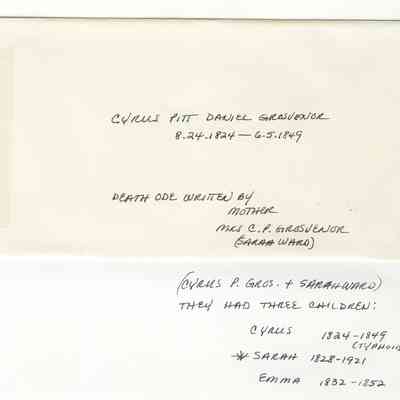 CYRUS PITT DANIEL GROSVENOR
8.24.1824 — 6.5.1849
DEATH ODE WRITTEN BY
MOTHER
MRS C. P. GROSVENOR
(SARAH WARD)
(CYRUS P. GROS. + SARAH WARD)
THEY HAD THREE CHILDREN:
CYRUS 1824-1849
(TYPHOID
* SARAH 1828-1921
EMMA 1832-1852